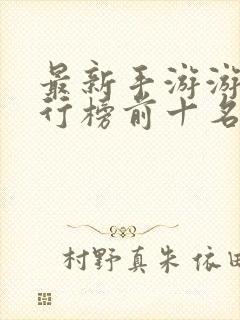 最新手游游
行榜前十名
村野真朱 依田